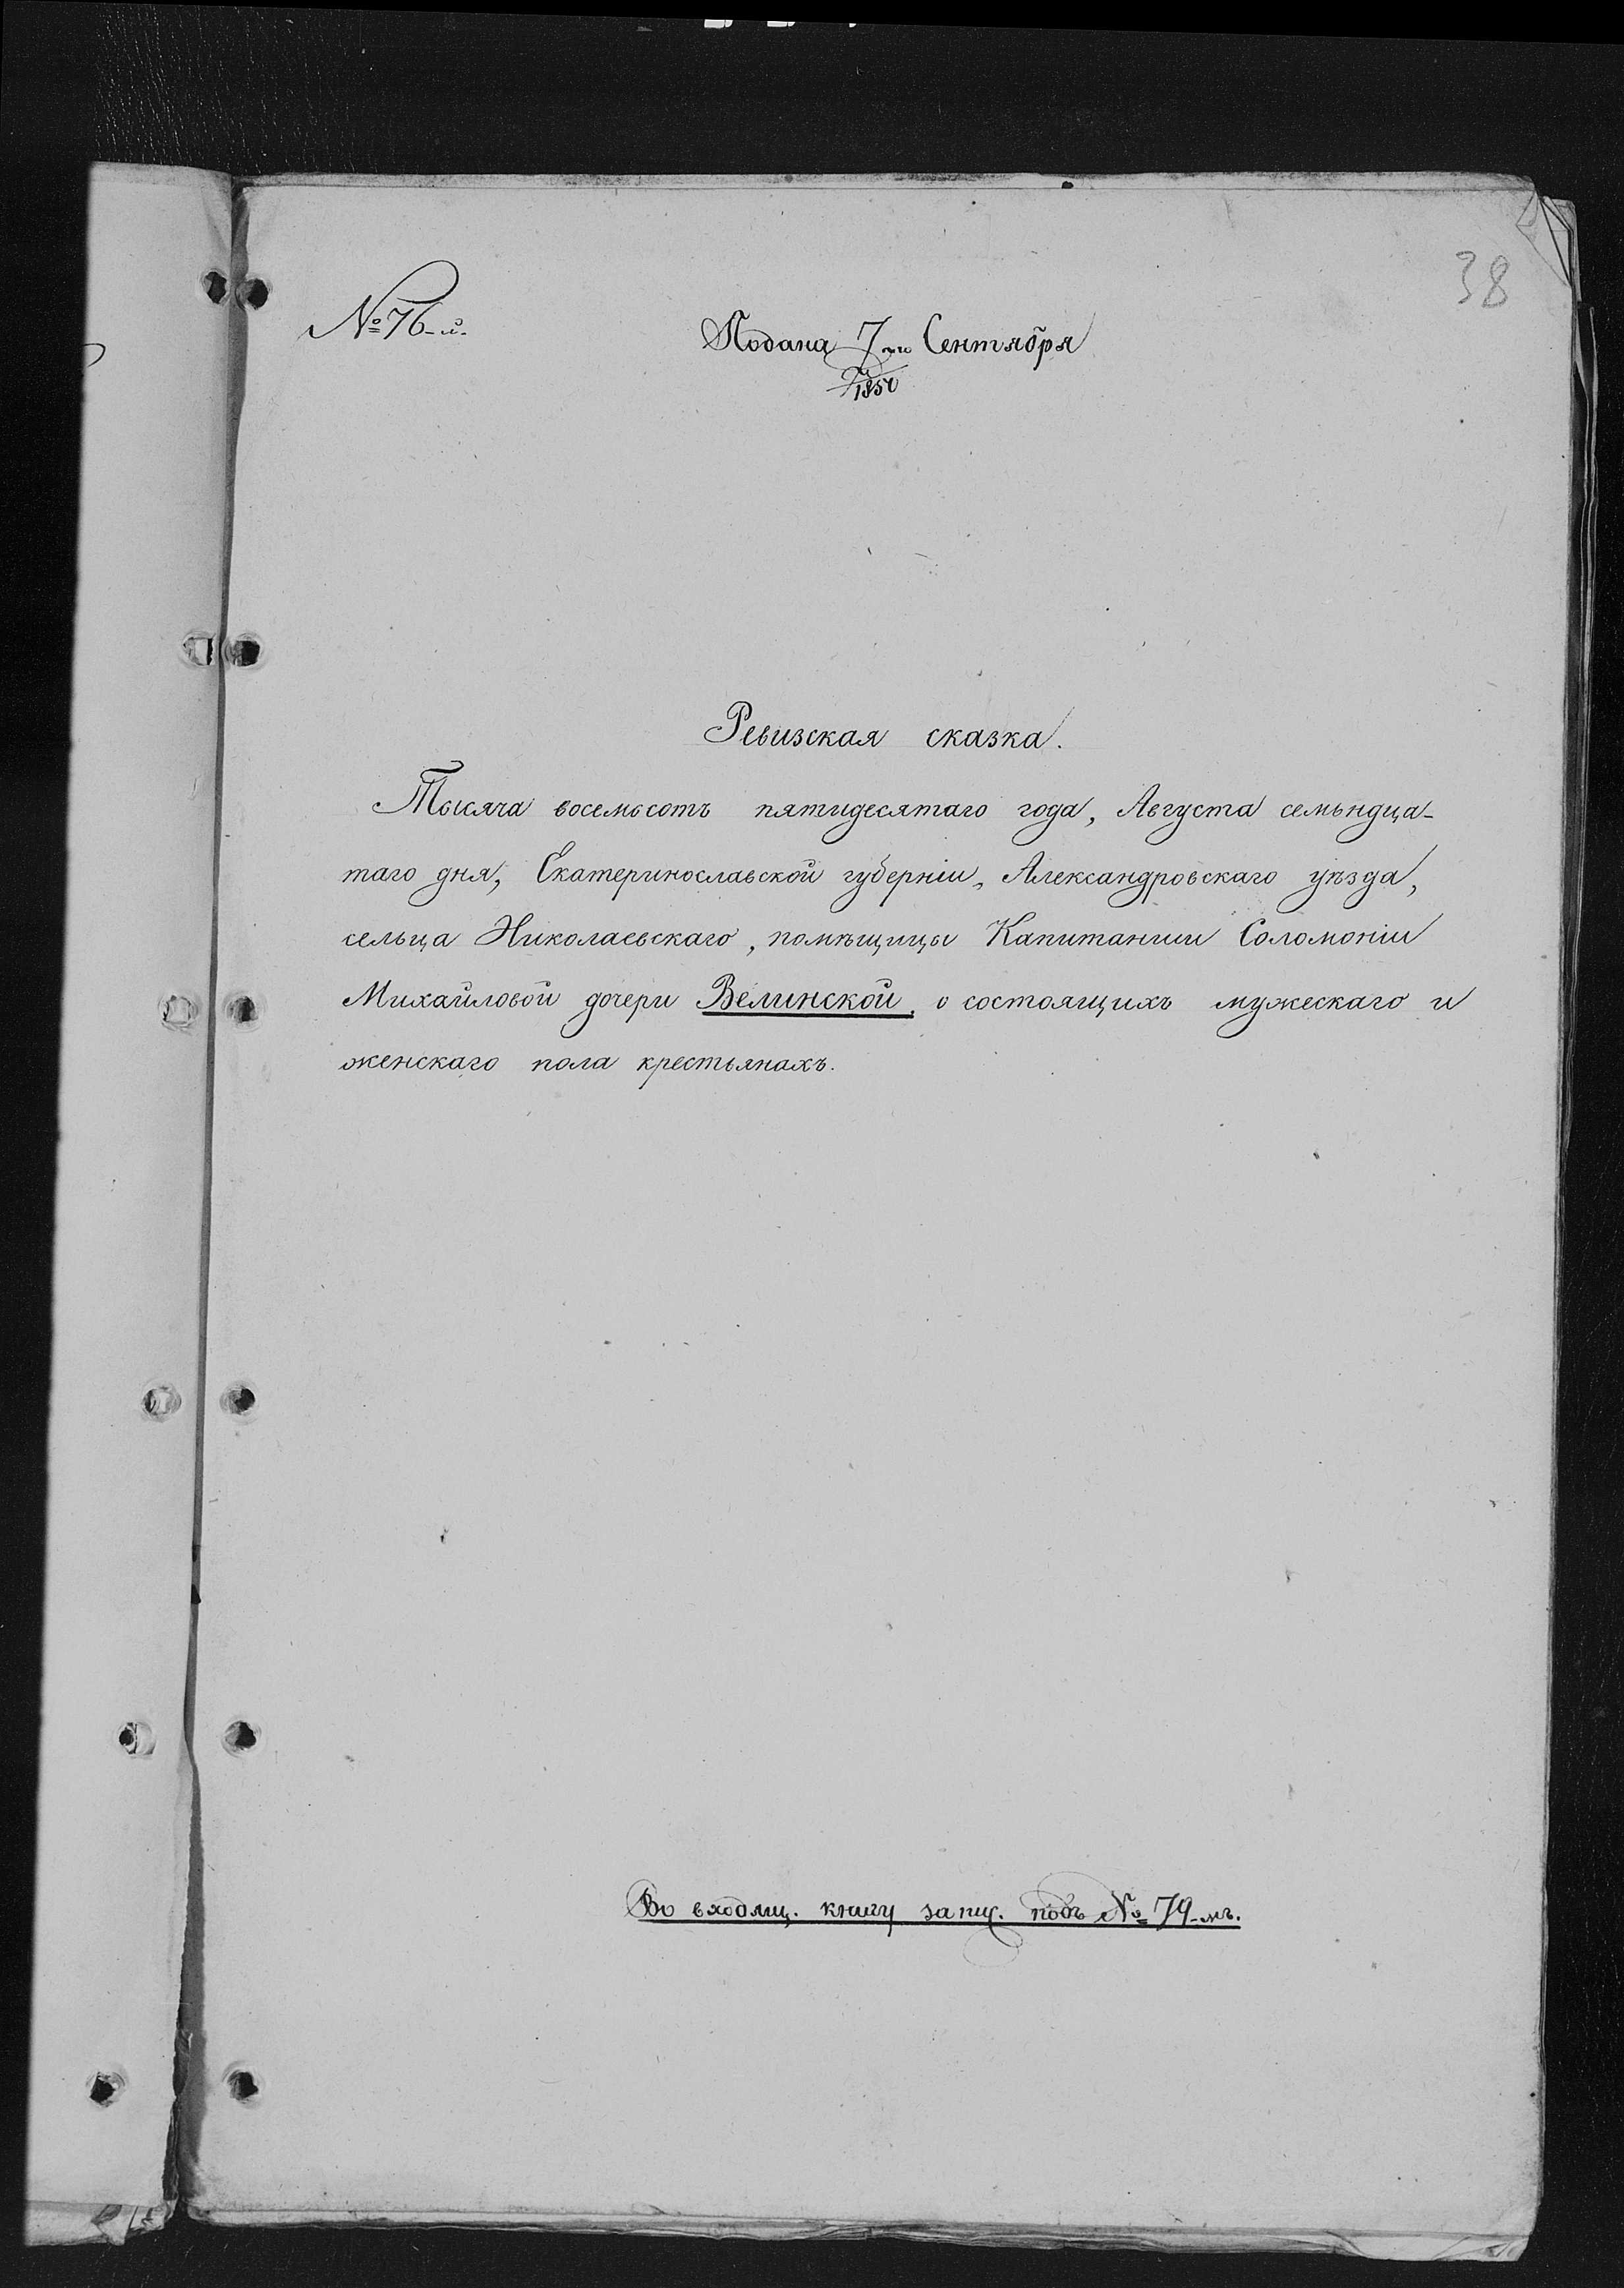 38
№ 76-й.
Подана 7-го Сентября
1850
Ревизская сказка.
Тысяча восемьсотъ пятидесятаго года, Августа семьндца-
таго дня, Екатеринославской губерніи, Александровскаго уѣзда,
сельца Николаевскаго, помѣщицы Капитанши Соломоніи
Михайловой дочери Велинской, о состоящихъ мужескаго и
женскаго пола крестьянахъ.
Во входящ. книгу запис. подъ № 79-мъ.